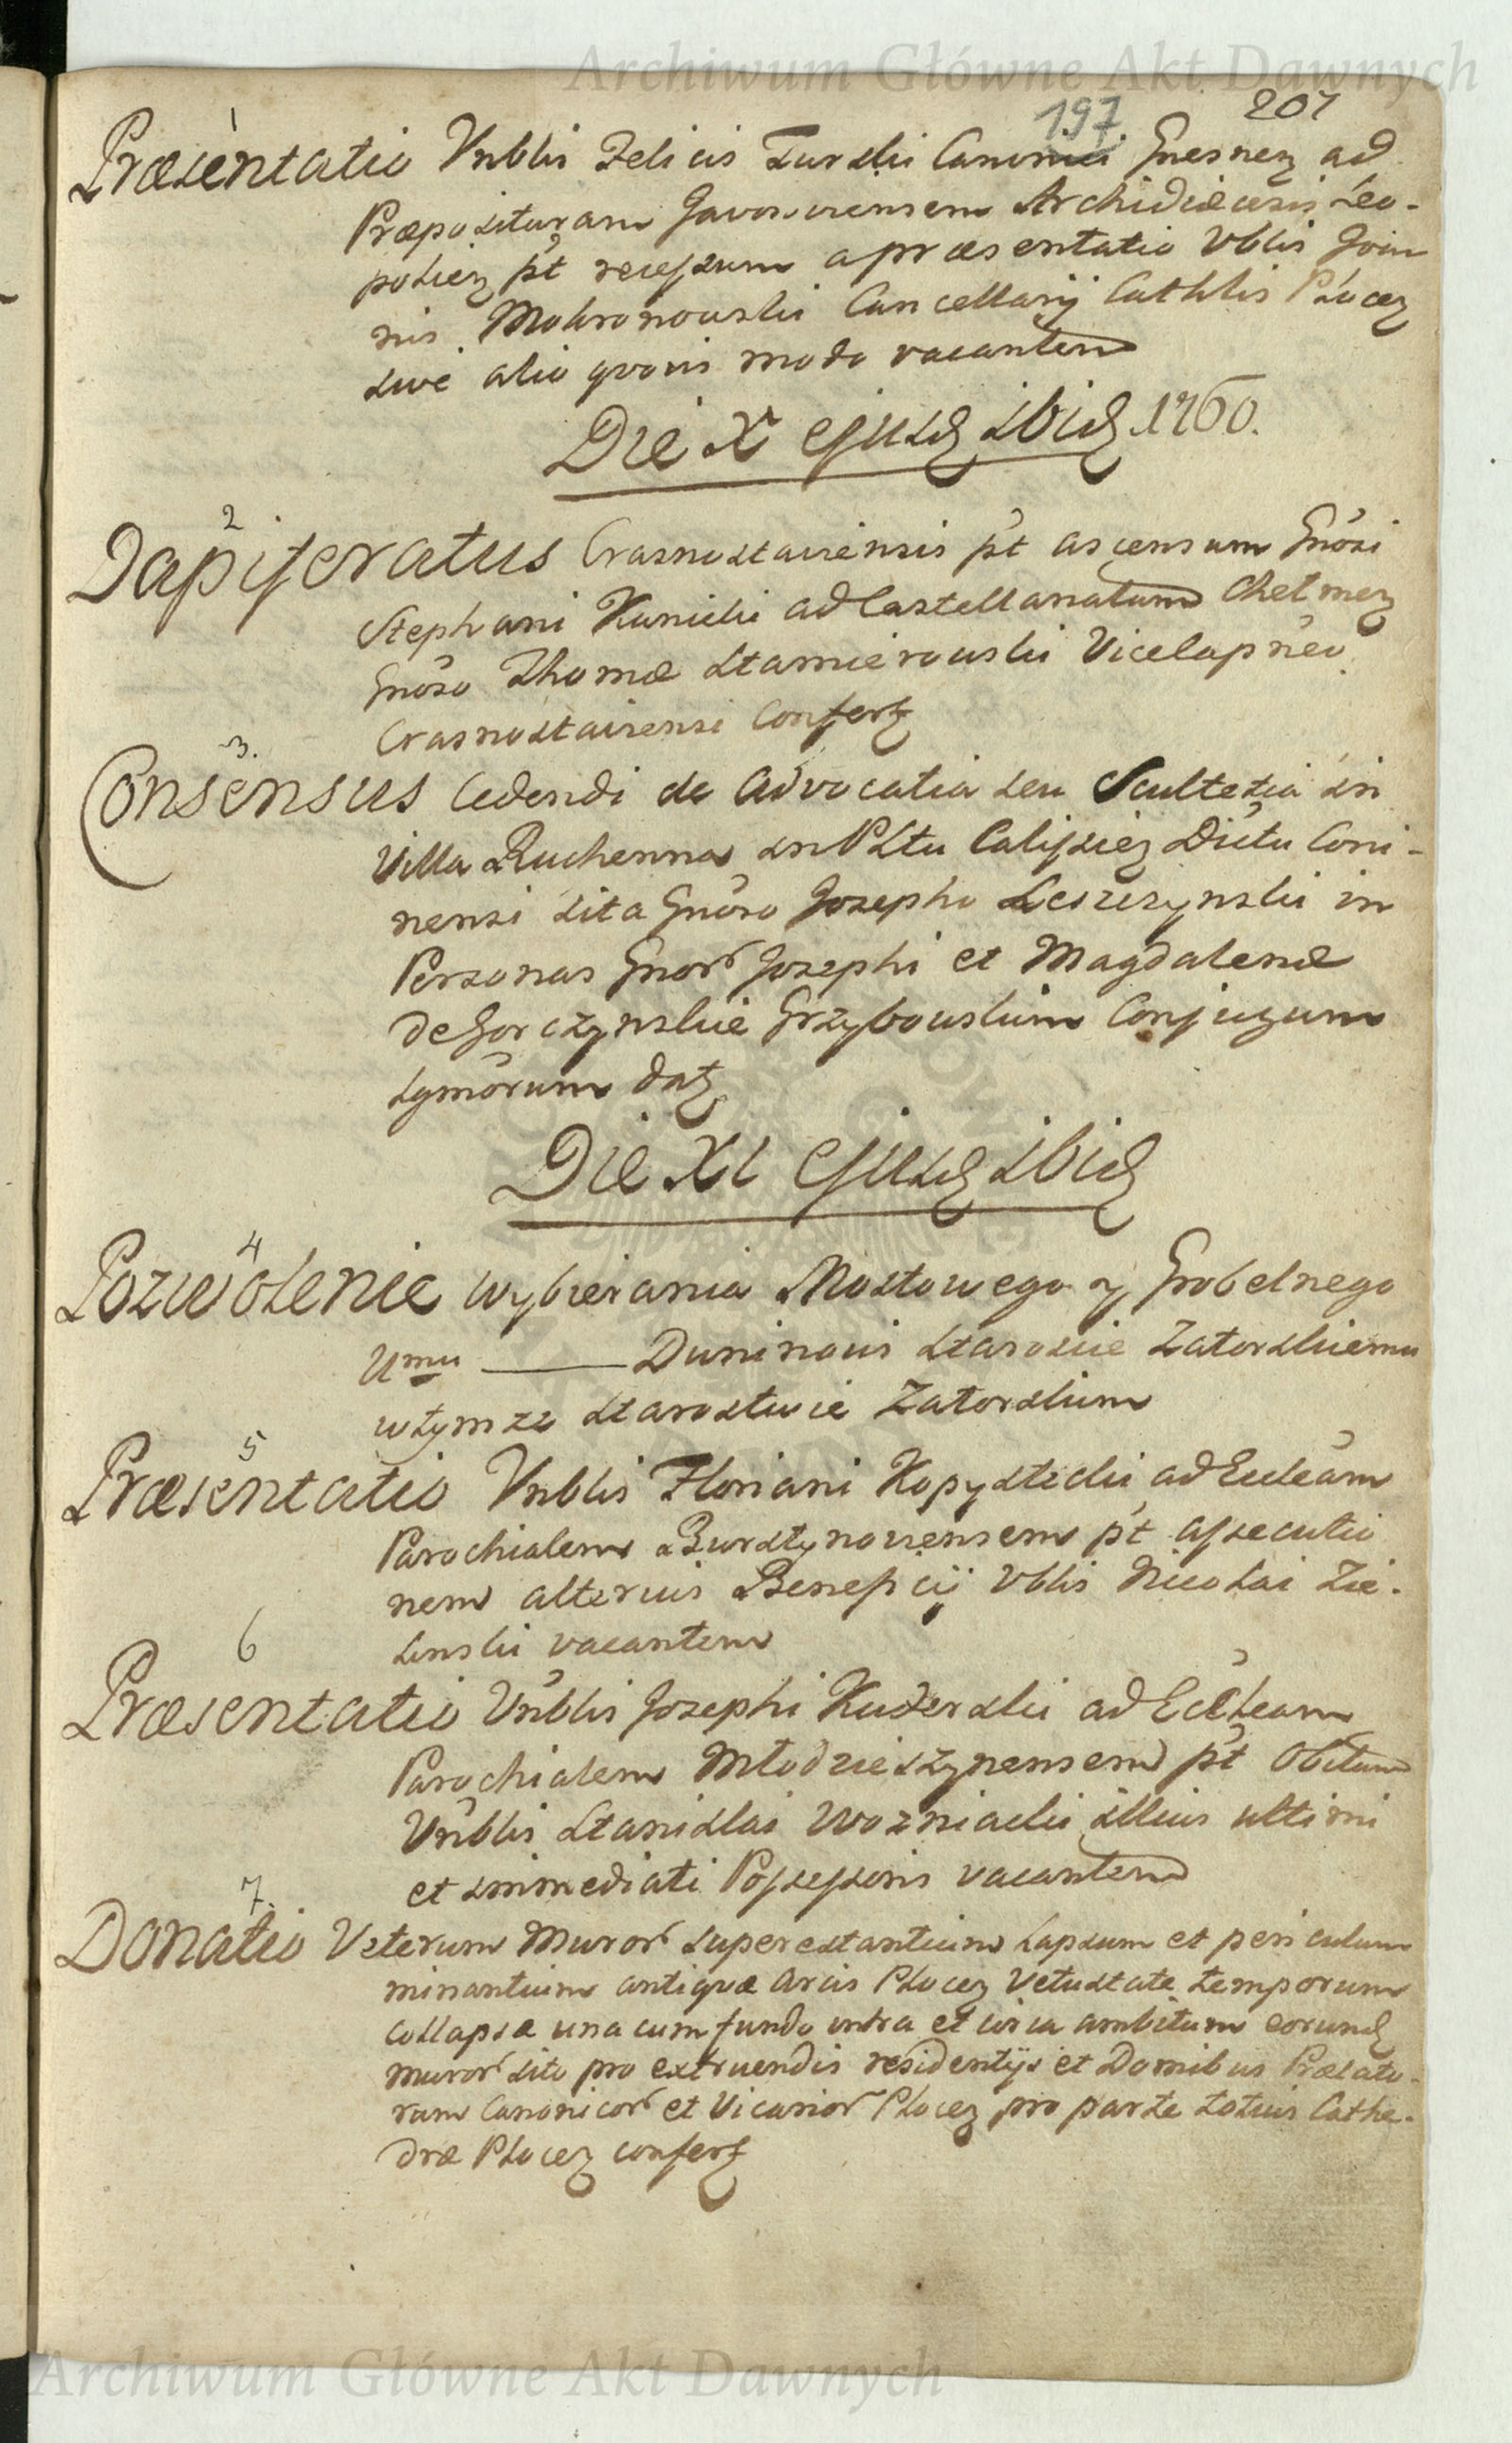 Archiwum Główne Akt Dawnych
197 201
1
Præsentatio Vnblis Felicis Turski Canonici Gnesnen ad
Præposituram Javoroviensem Archidiæcesis Leo-
polien pt recessum a præsentatio Vblis Joan
nis Mokronowski Cancellarij Cathlis Plocen
sive alio quovis modo vacantem
Die X ejusd ibid 1760.
2
Dapiferatus Crasnostaviensis pt ascensum Gnosi
Stephani Kunicki ad Castellanatum Chelmen
Gnoso Thomæ Stamierowski Vicecapneo
Crasnostaviensi Confert
3.
Consensus Cedendi de Advocatia seu Scultetia in
Villa Ruchenna in Pltu Calissien Dictu Coni-
nensi sita Gnoso Josepho Leszczynski in
Personas Gnor Josephi et Magdalenæ
de Gorczynskie Grzybowskim Conjugum
sgmorum dat
Die XI ejusd ibid
4
Pozwolenie wybierania Mostowego y Grobelnego
Umu ——— Duninowi Staroscie Zatorskiemu
w tymze Starostwie Zatorskim
5
Præsentatio Vnblis Floriani Kopystecki ad Eccleam
Parochialem Bursztynoviensem pt assecutio
nem alterius Beneficij Vblis Nicolai Zie-
linski vacantem
6
Præsentatio Vnblis Josephi Kuderski ad Eccleam
Parochialem Młodzieszynensem pt Obitum
Vnblis Stanislai Wozniacki illius ultimi
et immediati Possessoris vacantem
7.
Donatio Veterum Muror superextantium lapsum et periculum
minantium antiquæ Arcis Plocen Vetustate temporum
collapsæ una cum fundo intra et circa ambitum eorund
muror sito pro extruendis residentijs et Domibus Prælato-
rum Canonicor et Vicarior Plocen pro parte totius Cathe-
dræ Plocen confert
Archiwum Główne Akt Dawnych